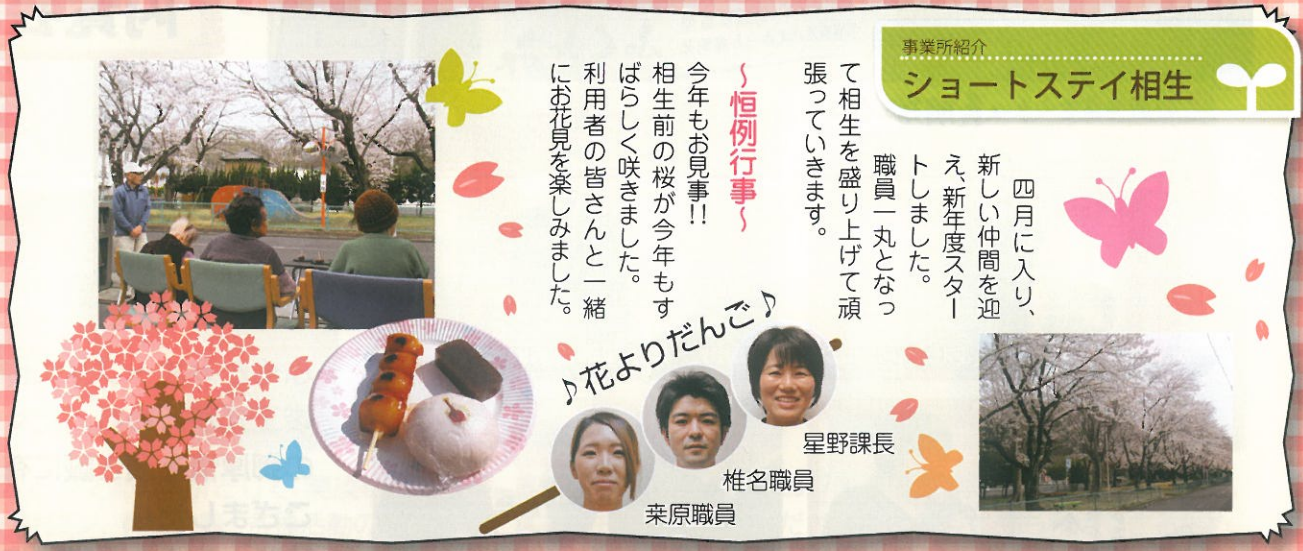 事業所紹介
ショートステイ相生
四月に入り、
新しい仲間を迎
え、新年度スター
トしました。
職員一丸となっ
て相生を盛り上げて頑
張っていきます。
～恒例行事～
今年もお見事!!
相生前の桜が今年もす
ばらしく咲きました。
利用者の皆さんと一緒
にお花見を楽しみました。
♪花よりだんご♪
星野課長
椎名職員
桒原職員